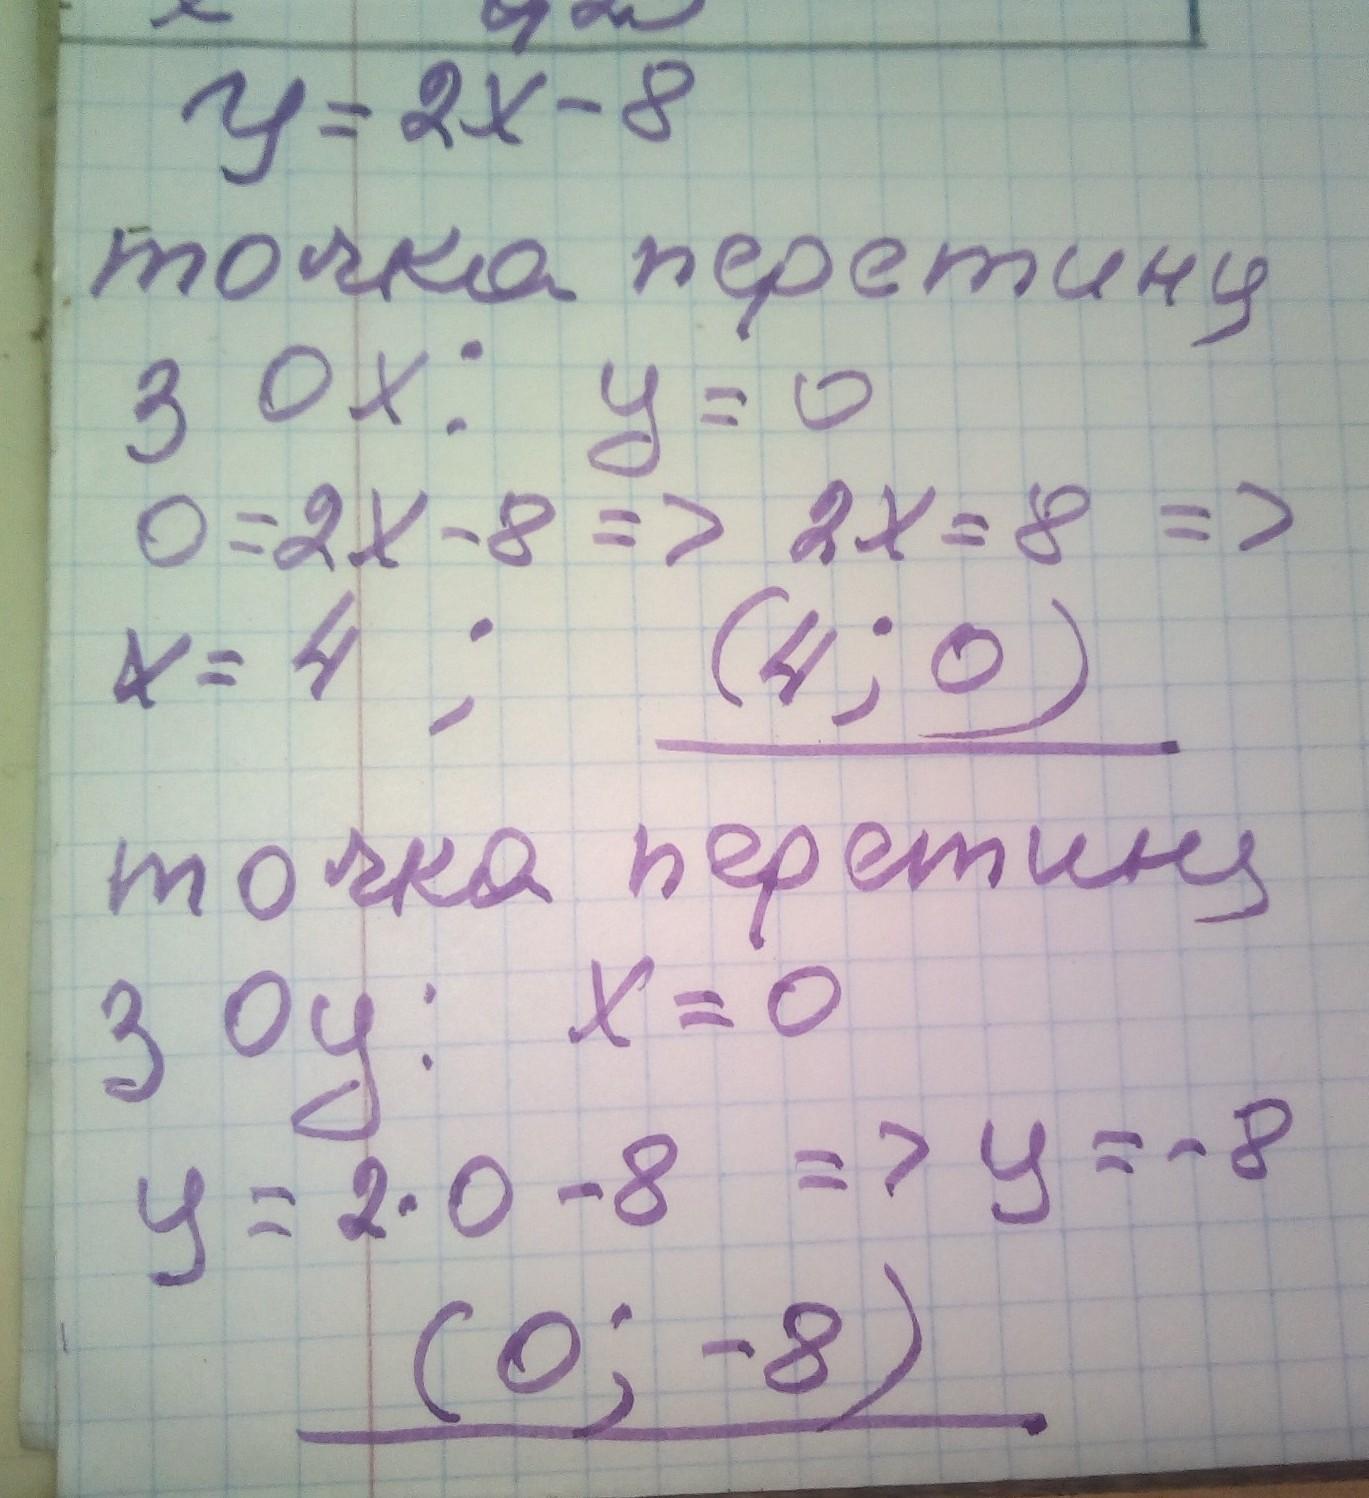 y = 2x - 8
точка перетину
з Ox: y = 0
0 = 2x - 8 => 2x = 8 =>
x = 4 ; (4; 0)
точка перетину
з Oy: x = 0
y = 2·0 - 8 => y = -8
(0; -8)